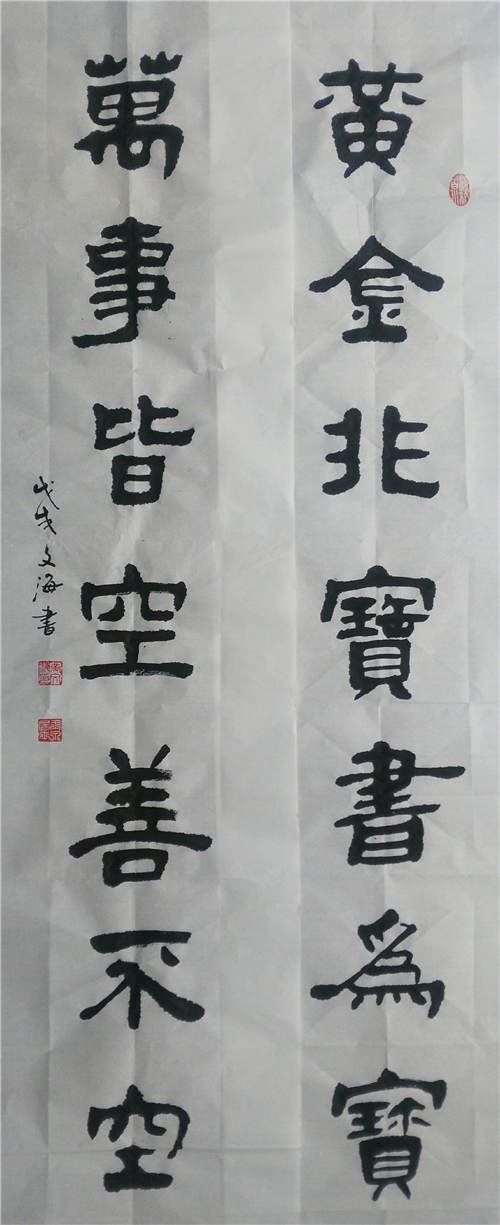 黃金非寶書為寶
萬事皆空善不空
戊戌文海書